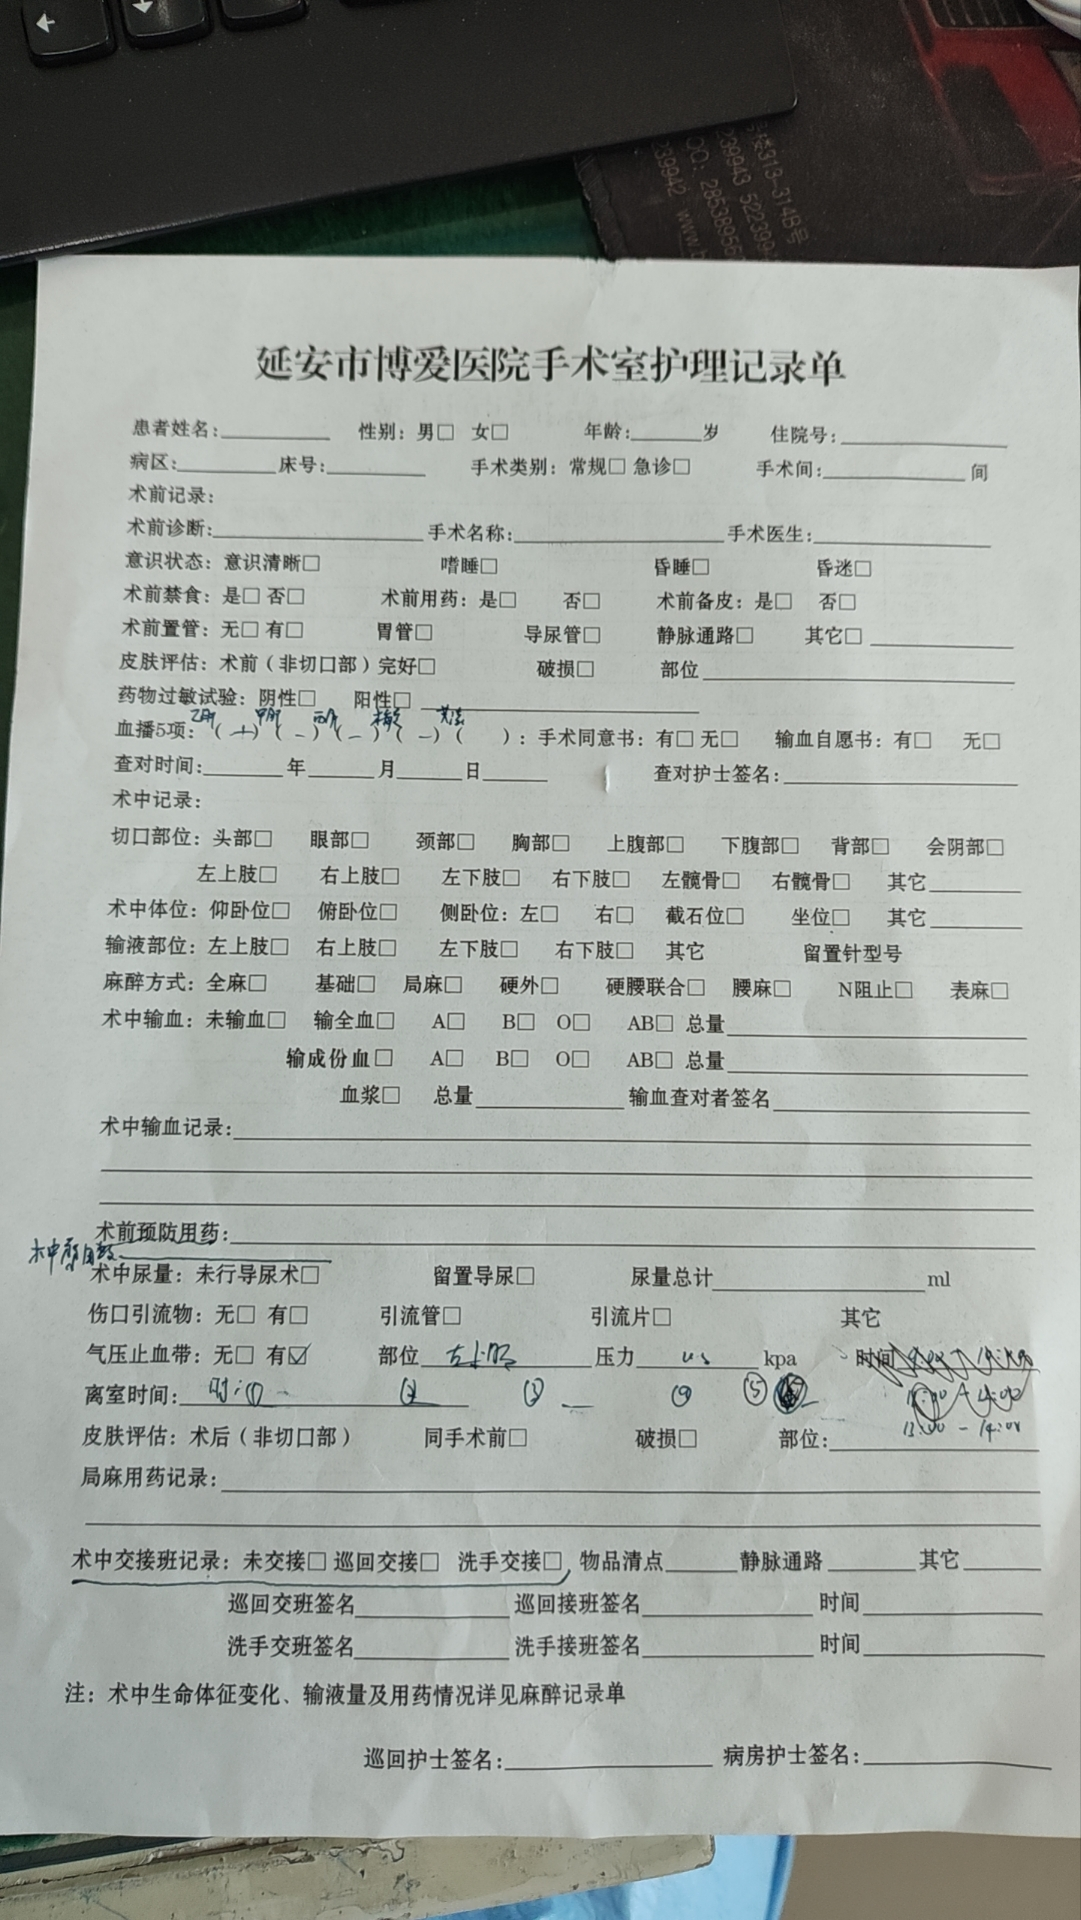 313-314B号
239943 5223994
QQ: 28538956
239942 www.b
延安市博爱医院手术室护理记录单
患者姓名:________ 性别: 男□ 女□ 年龄:______岁 住院号:________
病区:________床号:________ 手术类别: 常规□ 急诊□ 手术间:________间
术前记录:
术前诊断:________手术名称:________手术医生:________
意识状态: 意识清晰□ 嗜睡□ 昏睡□ 昏迷□
术前禁食: 是□ 否□ 术前用药: 是□ 否□ 术前备皮: 是□ 否□
术前置管: 无□ 有□ 胃管□ 导尿管□ 静脉通路□ 其它□________
皮肤评估: 术前(非切口部)完好□ 破损□ 部位________
药物过敏试验: 阴性□ 阳性□________
乙肝 甲肝 丙肝 梅毒
血播5项: (+) (-) (-) (-) ( ): 手术同意书: 有□ 无□ 输血自愿书: 有□ 无□
查对时间:________年______月______日______ 查对护士签名:________
术中记录:
切口部位: 头部□ 眼部□ 颈部□ 胸部□ 上腹部□ 下腹部□ 背部□ 会阴部□
左上肢□ 右上肢□ 左下肢□ 右下肢□ 左髋骨□ 右髋骨□ 其它________
术中体位: 仰卧位□ 俯卧位□ 侧卧位: 左□ 右□ 截石位□ 坐位□ 其它________
输液部位: 左上肢□ 右上肢□ 左下肢□ 右下肢□ 其它 留置针型号
麻醉方式: 全麻□ 基础□ 局麻□ 硬外□ 硬腰联合□ 腰麻□ N阻止□ 表麻□
术中输血: 未输血□ 输全血□ A□ B□ O□ AB□ 总量________
输成份血□ A□ B□ O□ AB□ 总量________
血浆□ 总量________输血查对者签名________
术中输血记录:________
术前预防用药:________
术中
术中尿量: 未行导尿术□ 留置导尿□ 尿量总计________ml
伤口引流物: 无□ 有□ 引流管□ 引流片□ 其它
气压止血带: 无□ 有☑ 部位________压力________kpa 时间
离室时间: ① ② ③ ④ ⑤
13:00 - 14:00
皮肤评估: 术后(非切口部) 同手术前□ 破损□ 部位:________
局麻用药记录:________
术中交接班记录: 未交接□ 巡回交接□ 洗手交接□, 物品清点______静脉通路______其它______
巡回交班签名________巡回接班签名________时间________
洗手交班签名________洗手接班签名________时间________
注: 术中生命体征变化、输液量及用药情况详见麻醉记录单
巡回护士签名:________病房护士签名:________